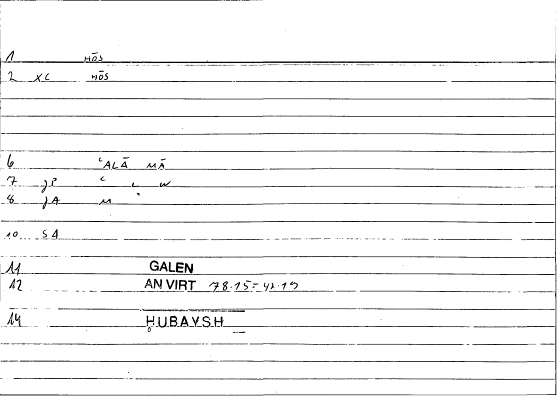 1 HŌS
2 XC HŌS
6 ʿALĀ MĀ
7 JP ʿ L W
8 JA M
10 SA
11 GALEN
12 AN VIRT 78.15 = 42.19
14 ḤUBAYSH